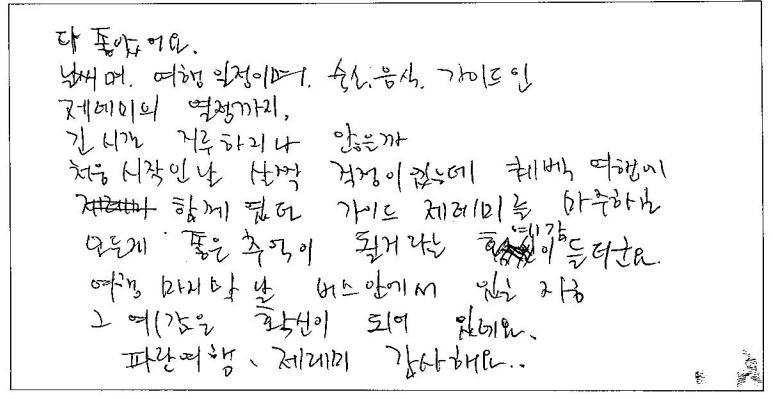 다 좋았어요.
날씨며. 여행 일정이며. 숙소. 음식. 가이드인
제레미의 열정까지,
긴 시간 지루하지나 않을까
처음 시작인 날 살짝 걱정이 있는데 퀘벡 여행에
함께 했던 가이드 제레미를 마주하는
모든게 좋은 추억이 될거라는 예감이 들더군요.
여행 마지막 날 버스안에서 있는 지금
그 예감은 확신이 되어 있네요.
파란여행、제레미 감사해요..